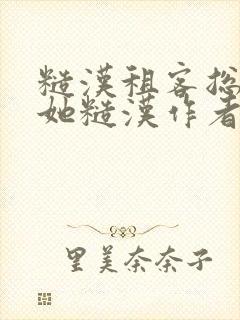 糙漢租客总
她糙漢作者
里美奈奈子